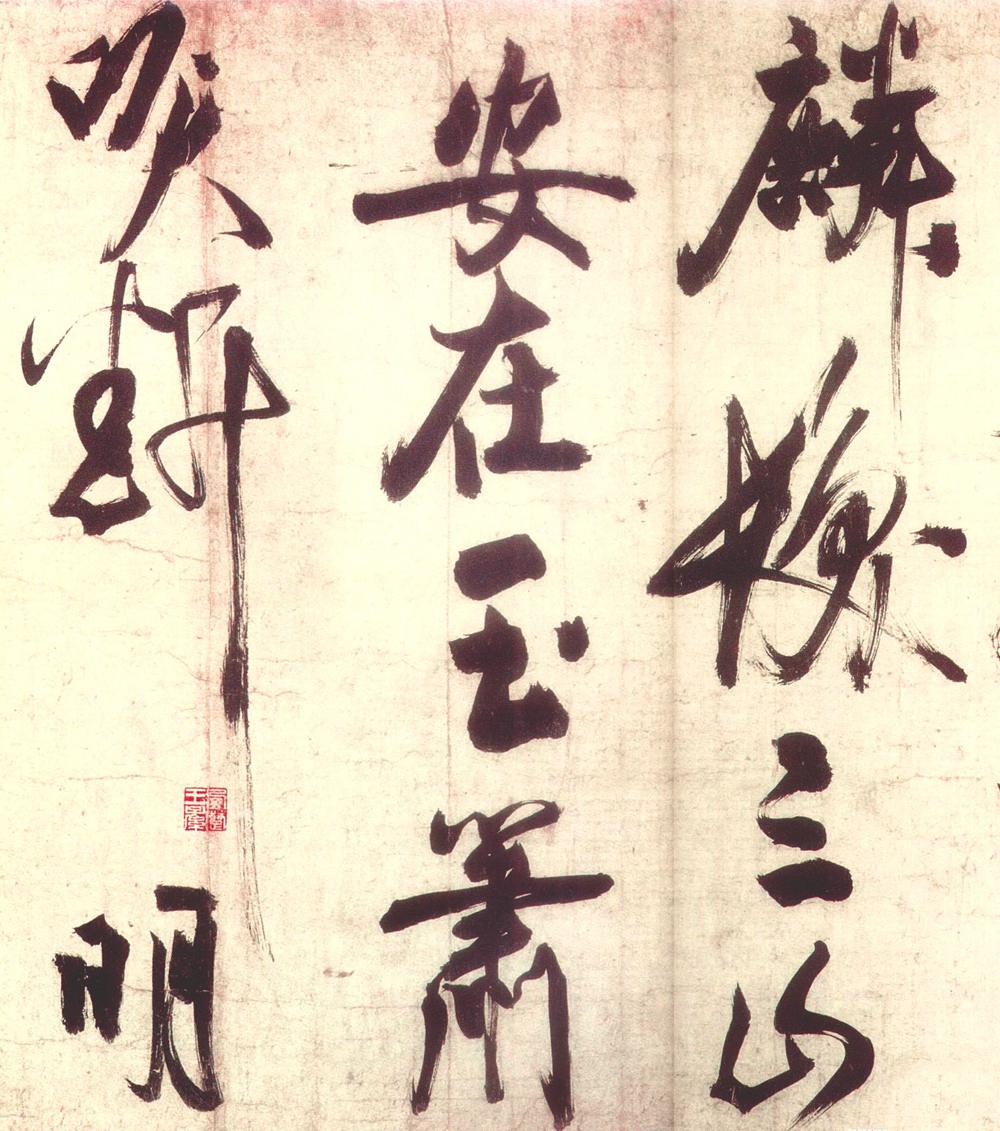 麟髮三山
安在玉簫
吹斷明